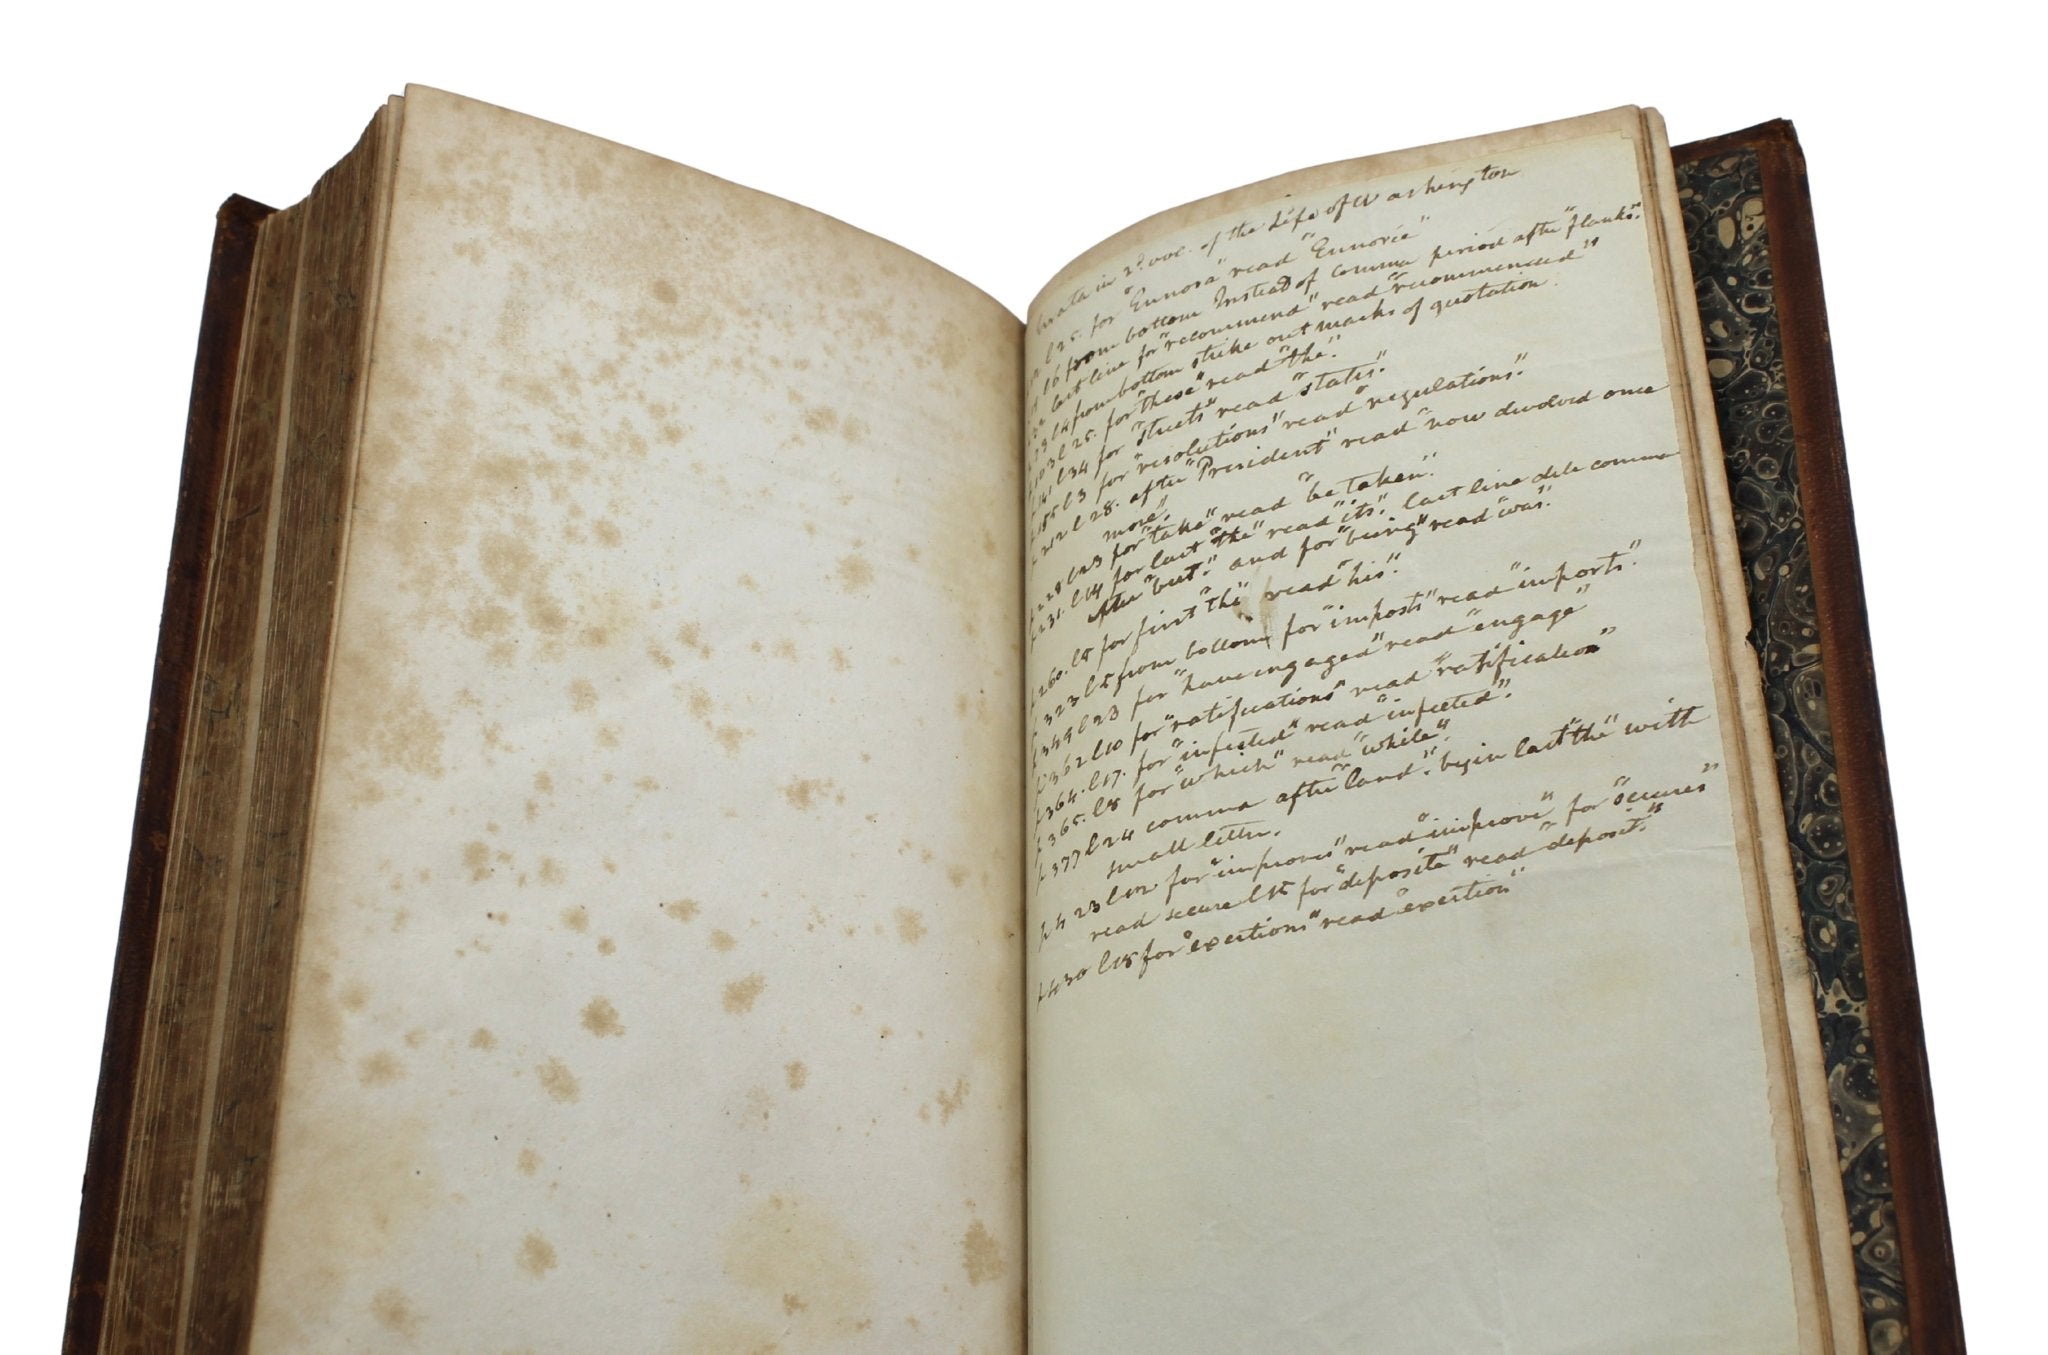 Errata in 2d. vol. of the Life of Washington
l 25. for "Eunosa" read "Eunoria"
l 6 from bottom Instead of comma period after "flanks".
last line for "recommend" read "recommended"
l 4 from bottom strike out marks of quotation.
103 l 25. for "these" read "the".
141 l 34 for "streets" read "states".
p 155 l 3 for "resolutions" read "regulations".
p 212 l 28. after "President" read "now devolved once
more".
p 228 l 23 for "take" read "be taken".
p 231. l 14 for last "the" read "its". last line dele comma
after "but". and for "being" read "was".
p 260. l 5 for first "the" read "his".
p 323 l 5 from bottom for "imposts" read "imports".
p 349 l 23 for "have engaged" read "engage"
p 362 l 10 for "ratifications" read "ratification"
p 364. l 17. for "infested" read "infected".
p 365. l 8 for "which" read "while".
p 377 l 24 comma after "land". begin last "the" with
small letter.
p 423 l 12 for "improves" read "improve" for "secures"
read secure l 15 for "deposite" read "deposit."
p 430 l 18 for "exertions" read "exertion"